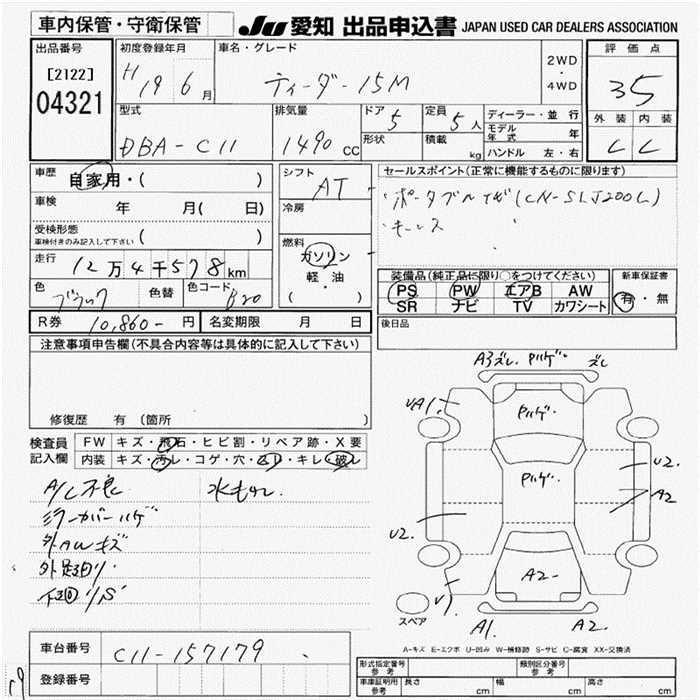 車内保管・守衛保管
JU 愛知 出品申込書 JAPAN USED CAR DEALERS ASSOCIATION
出品番号
[2122]
04321
初度登録年月
H19 6月
車名・グレード
ティーダ-15M
2WD・4WD
評価点
35
外装 内装
C C
型式
DBA-C11
排気量
1490cc
ドア
5
形状
定員
5人
積載 kg
ディーラー・並行
モデル年式 年
ハンドル 左・右
車歴 自家用・( )
車検 年 月( 日)
受検形態
車検付きのみ記入して下さい ( )
走行 12万4千578km
色 ブラック 色替 色コード B20
シフト AT
冷房
燃料
ガソリン
軽・油
( )
セールスポイント(正常に機能するものに限ります)
ポータブルナビ(CN-SLJ200L)
キーレス
装備品(純正品に限り○をつけてください)
PS PW エアB AW
SR ナビ TV カワシート
新車保証書
有・無
後日品
R券 10,860-円 名変期限 月 日
注意事項申告欄(不具合内容等は具体的に記入して下さい)
修復歴 有 (箇所 )
検査員記入欄
FW キズ・飛石・ヒビ割・リペア跡・X要
内装 キズ・汚レ・コゲ・穴・スレ・キレ・破レ
A/C不良 水もれ.
ミラーカバーハゲ
外AWキズ
外廻り
下廻りS
A3ズレ. Pハゲ. ズレ
UA1.
Pハゲ.
Pハゲ.
U2.
A2
U2.
A2-
A1.
A2.
スペア
A-キズ E-エクボ U-凹み W-補修跡 S-サビ C-腐食 XX-交換済
車台番号 C11-157179
登録番号
形式指定番号 参考
類別区分番号 参考
車庫証明用 参考 長さ cm 幅 cm 高さ cm